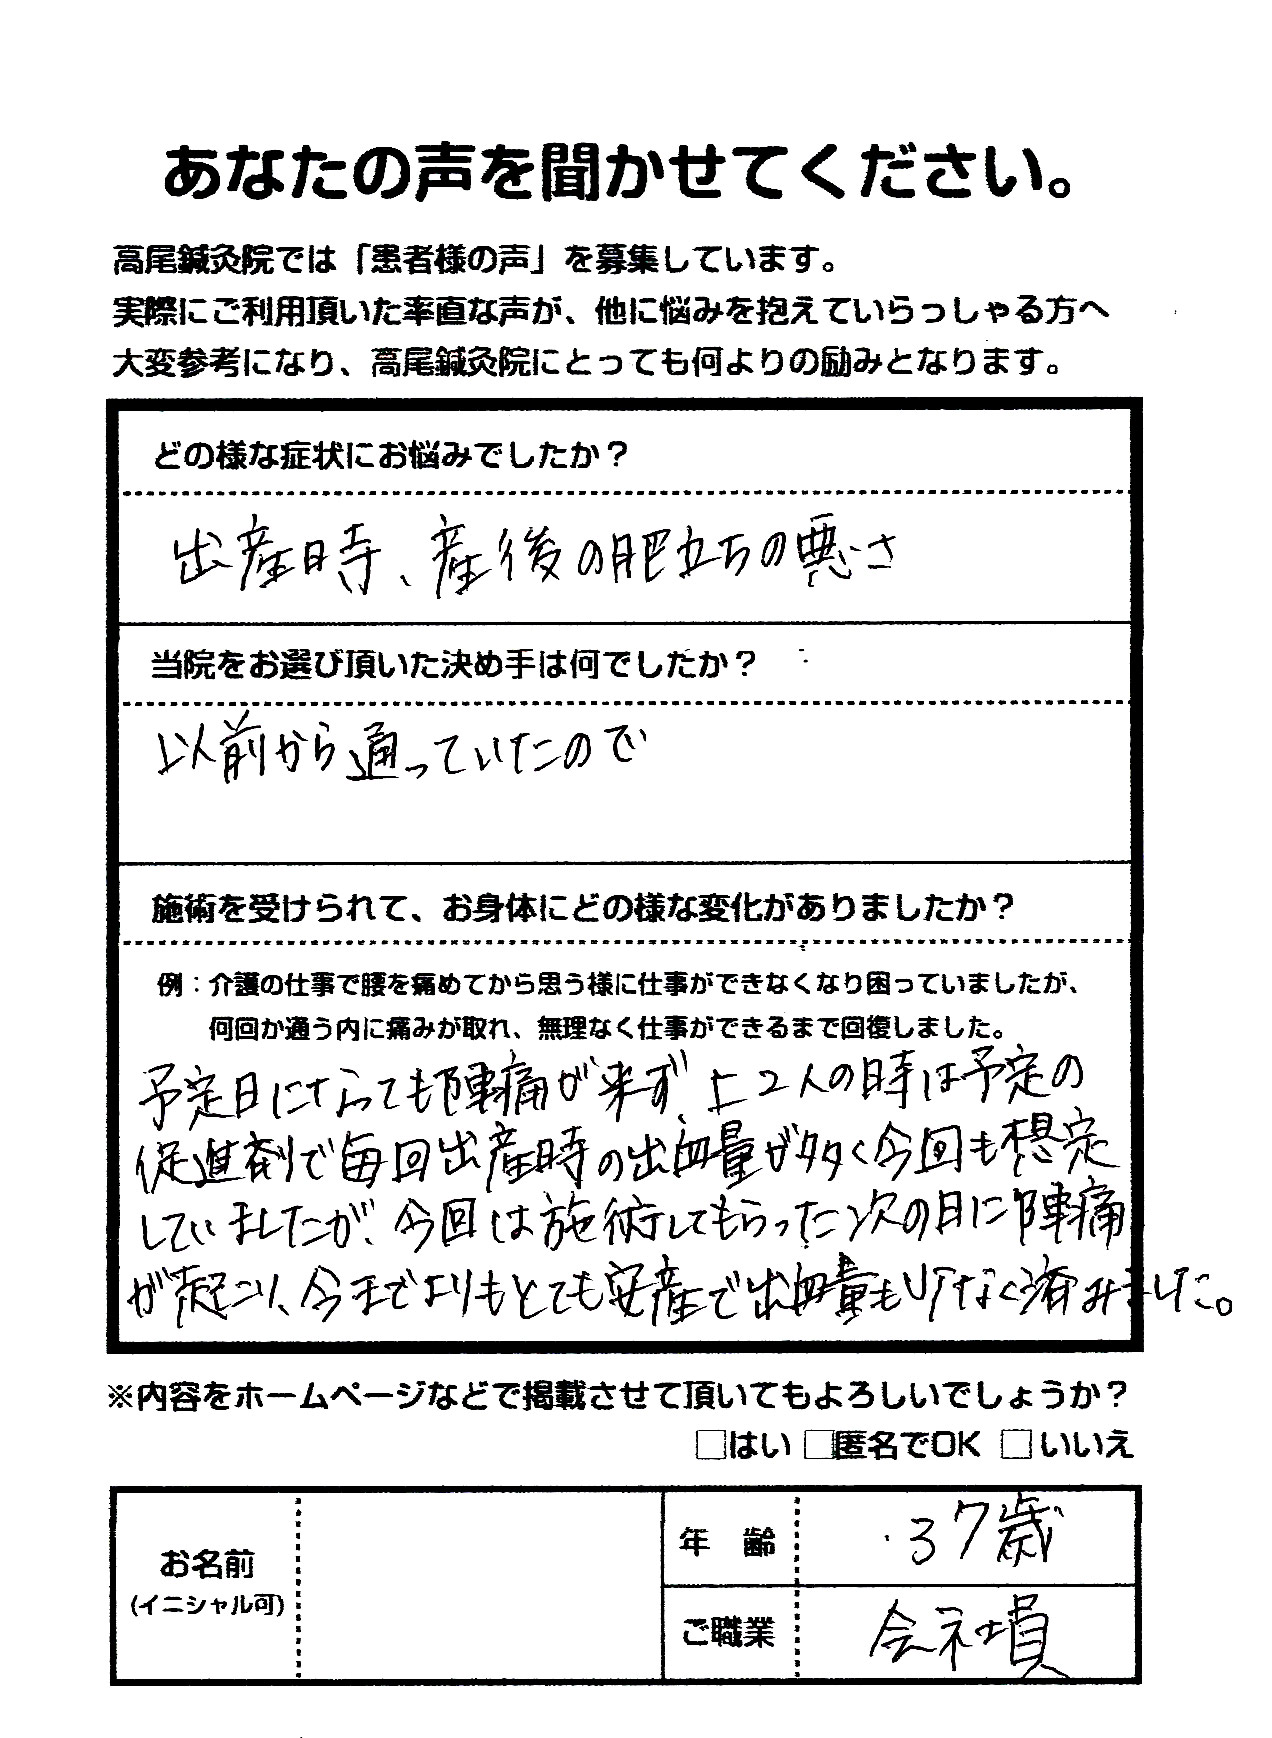 あなたの声を聞かせてください。
高尾鍼灸院では「患者様の声」を募集しています。
実際にご利用頂いた率直な声が、他に悩みを抱えていらっしゃる方へ
大変参考になり、高尾鍼灸院にとっても何よりの励みとなります。
どの様な症状にお悩みでしたか？
出産時、産後の肥立ちの悪さ
当院をお選び頂いた決め手は何でしたか？
以前から通っていたので
施術を受けられて、お身体にどの様な変化がありましたか？
例：介護の仕事で腰を痛めてから思う様に仕事ができなくなり困っていましたが、
何回か通う内に痛みが取れ、無理なく仕事ができるまで回復しました。
予定日になっても陣痛が来ず、上2人の時は予定の
促進剤で毎回出産時の出血量が多く今回も想定
していましたが、今回は施術してもらった次の日に陣痛
が起こり、今までよりもとても安産で出血量も少なく済みました。
※内容をホームページなどで掲載させて頂いてもよろしいでしょうか？
□はい □匿名でOK □いいえ
お名前
(イニシャル可)
年 齢
37歳
ご職業
会社員